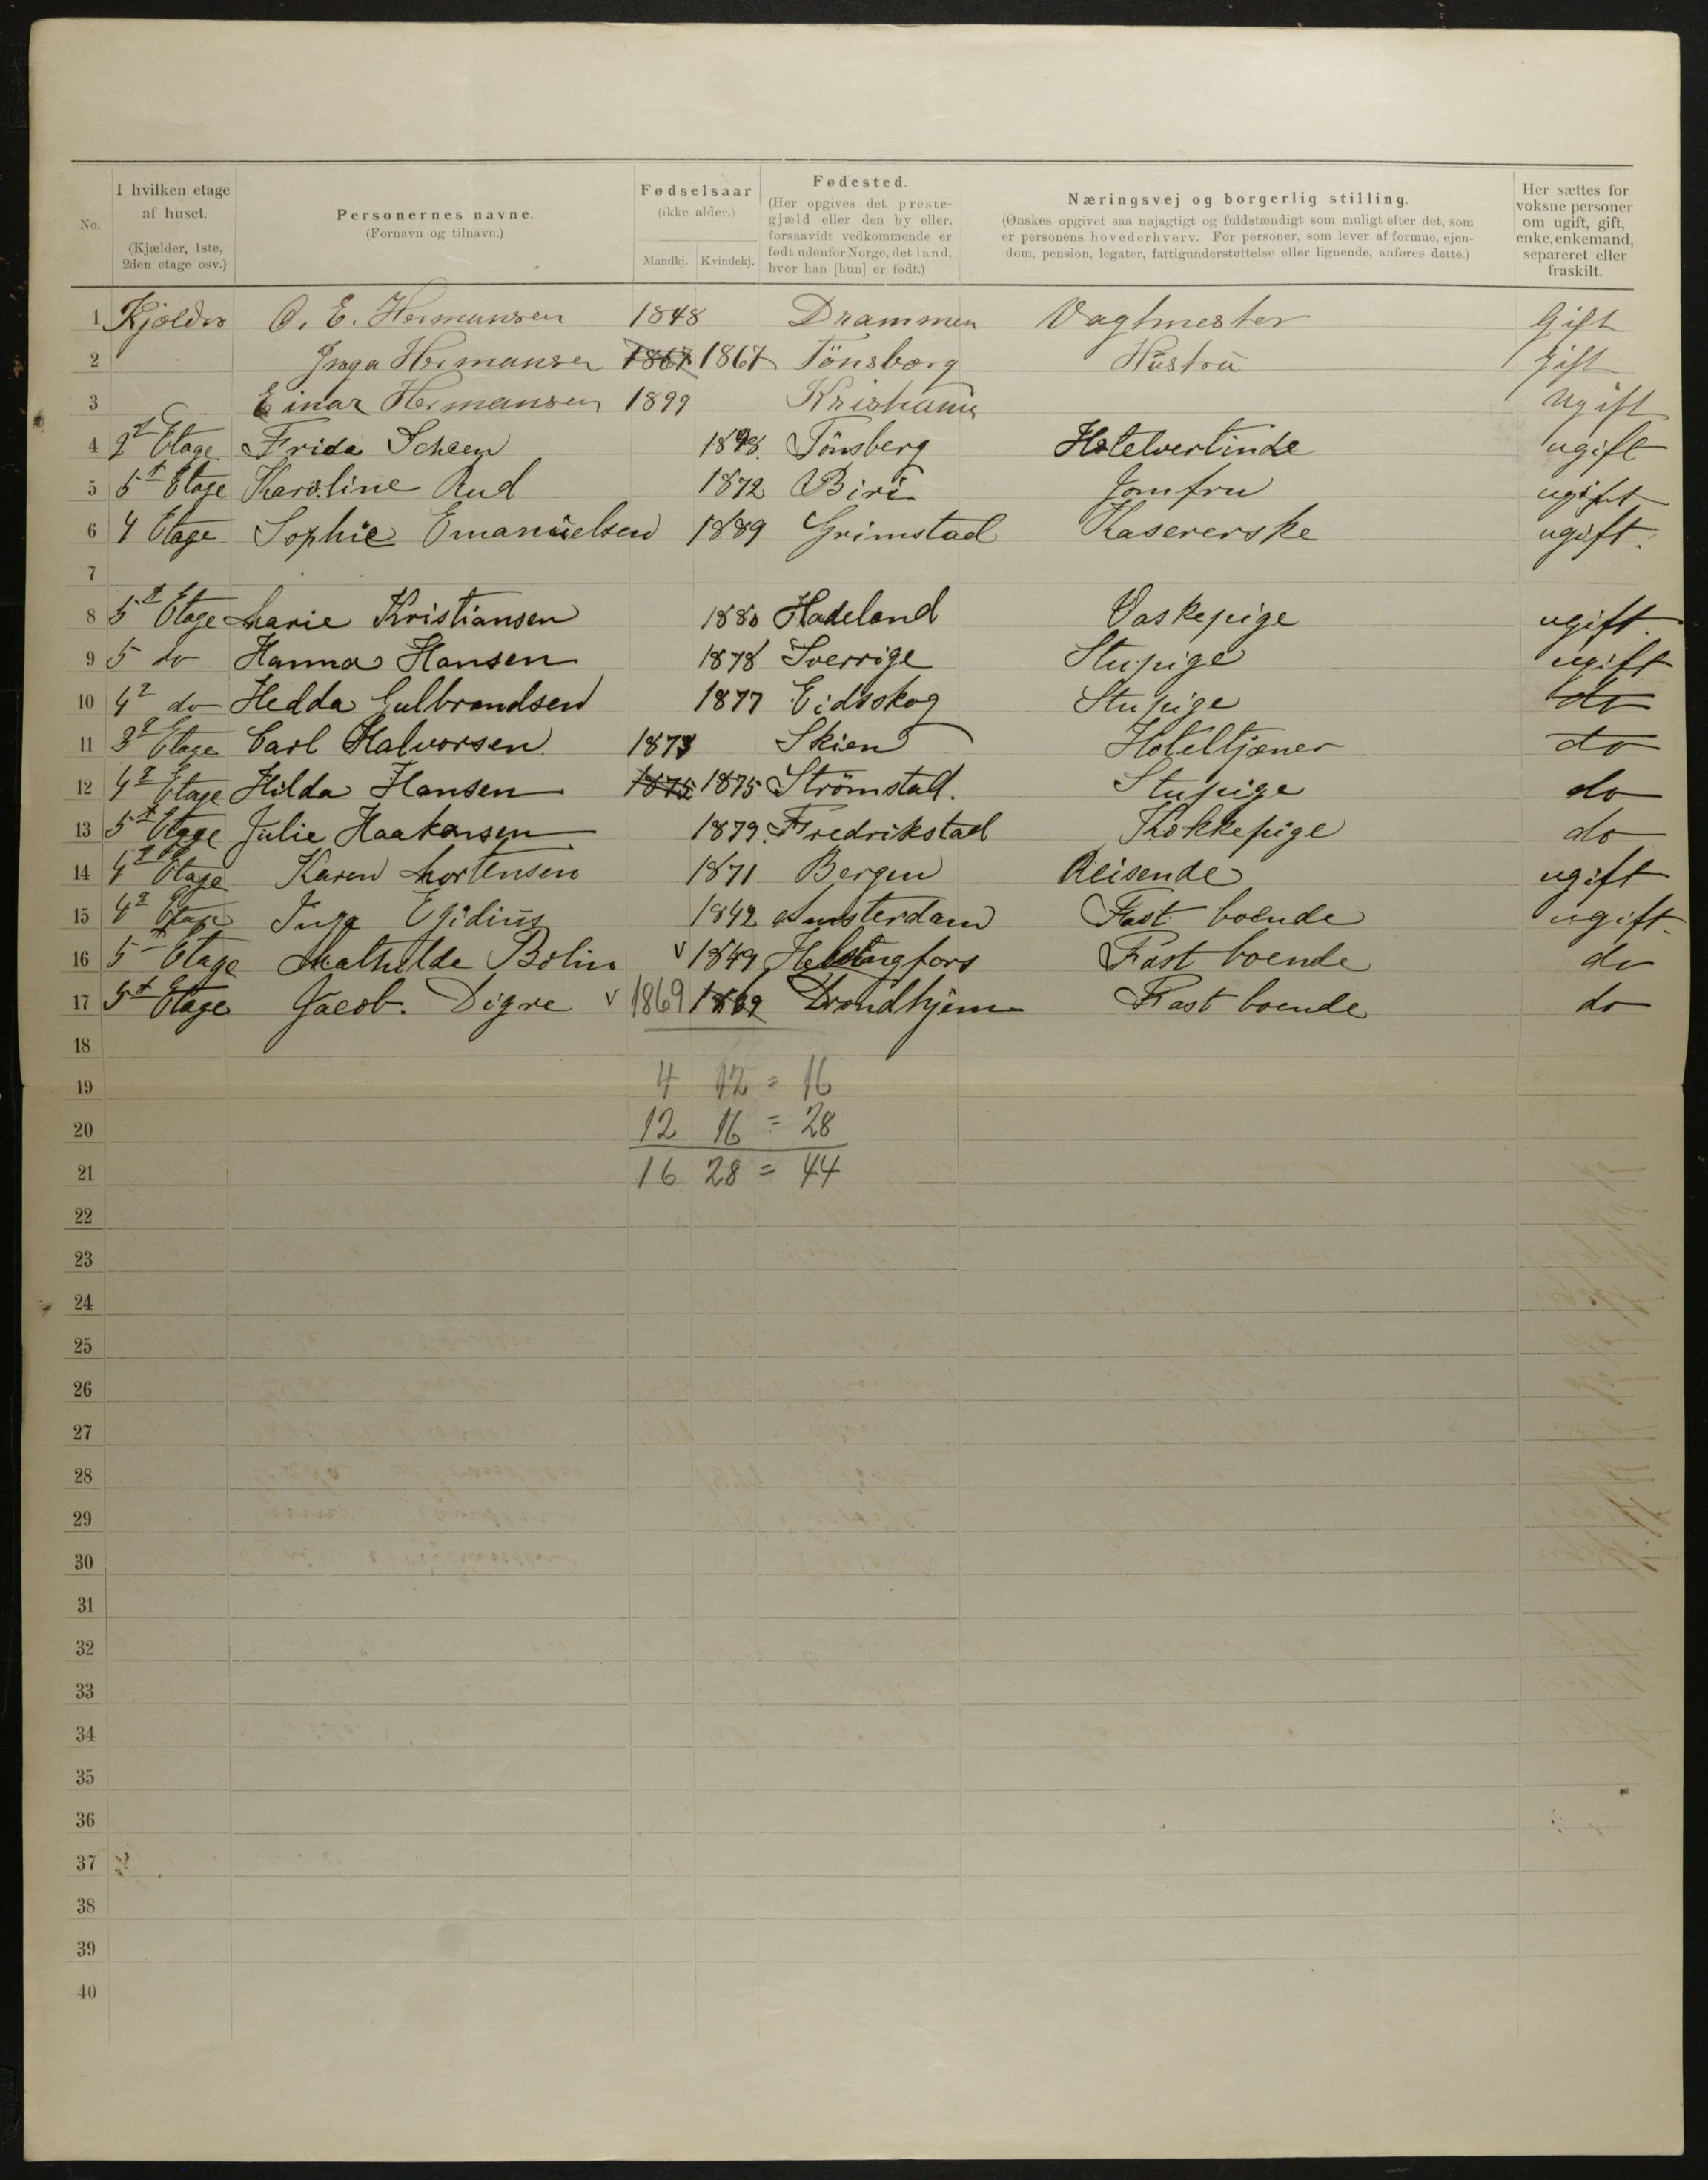 No.
I hvilken etage af huset. (Kjælder, 1ste, 2den etage osv.)
Personernes navne. (Fornavn og tilnavn.)
Fødselsaar (ikke alder.) Mandkj. Kvindekj.
Fødested. (Her opgives det prestegjæld eller den by eller, forsaavidt vedkommende er født udenfor Norge, det land, hvor han [hun] er født.)
Næringsvej og borgerlig stilling. (Ønskes opgivet saa nøjagtigt og fuldstændigt som muligt efter det, som er personens hovederhverv. For personer, som lever af formue, ejendom, pension, legater, fattigunderstøttelse eller lignende, anføres dette.)
Her sættes for voksne personer om ugift, gift, enke, enkemand, separeret eller fraskilt.
1 Kjælder O. E. Hermansen 1848 Drammen Vagtmester Gift
2 Inga Hermansen 1867 1867 Tönsberg Hustru Gift
3 Einar Hermansen 1899 Kristiania Ugift
4 2 Etage Frida Scheen Tönsberg Hotelvertinde ugift
5 5t Etage Karoline Rud 1872 Biri Jomfru ugift
6 4 Etage Sophie Emanuelsen 1889 Grimstad Kasererske ugift.
7
8 5t Etage Marie Kristiansen 1880 Hadeland Vaskepige ugift.
9 5 do Hanna Hansen 1878 Sverrige Stupige ugift
10 4 do Hedda Gulbrandsen 1877 Eidsskog Stupige do
11 3 Etage Carl Halvorsen. 1873 Skien Hoteltjæner do
12 4 Etage Hilda Hansen 1875 1875 Strömstad. Stupige do
13 5t Etage Julie Haakonsen 1879. Fredrikstad Kokkepige do
14 4 Etage Karen Mortensen 1871 Bergen Reisende ugift
15 4 Etage Inga Egidius 1842 Amsterdam Fast boende ugift.
16 5 Etage Mathilde Bolin v 1849 Helsingfors Fast boende do
17 5t Etage Jacob. Digre v 1869 1869 Trondhjem Fast boende do
18
19 4 12 = 16
20 12 16 = 28
21 16 28 = 44
22
23
24
25
26
27
28
29
30
31
32
33
34
35
36
37
38
39
40